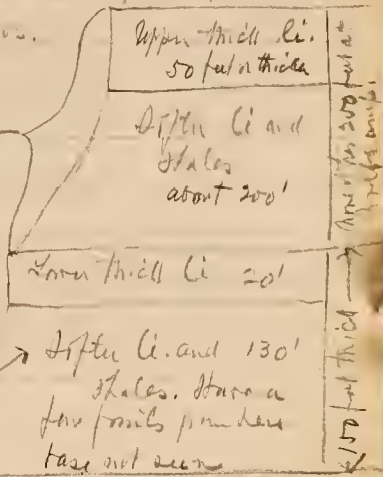 Upper thick li.
50 feet or thicker
Softer li and
shales
about 200'
Lower thick li 20'
Softer li. and 130'
shales. Have a
few fossils from here
base not seen
150 feet thick
200 feet